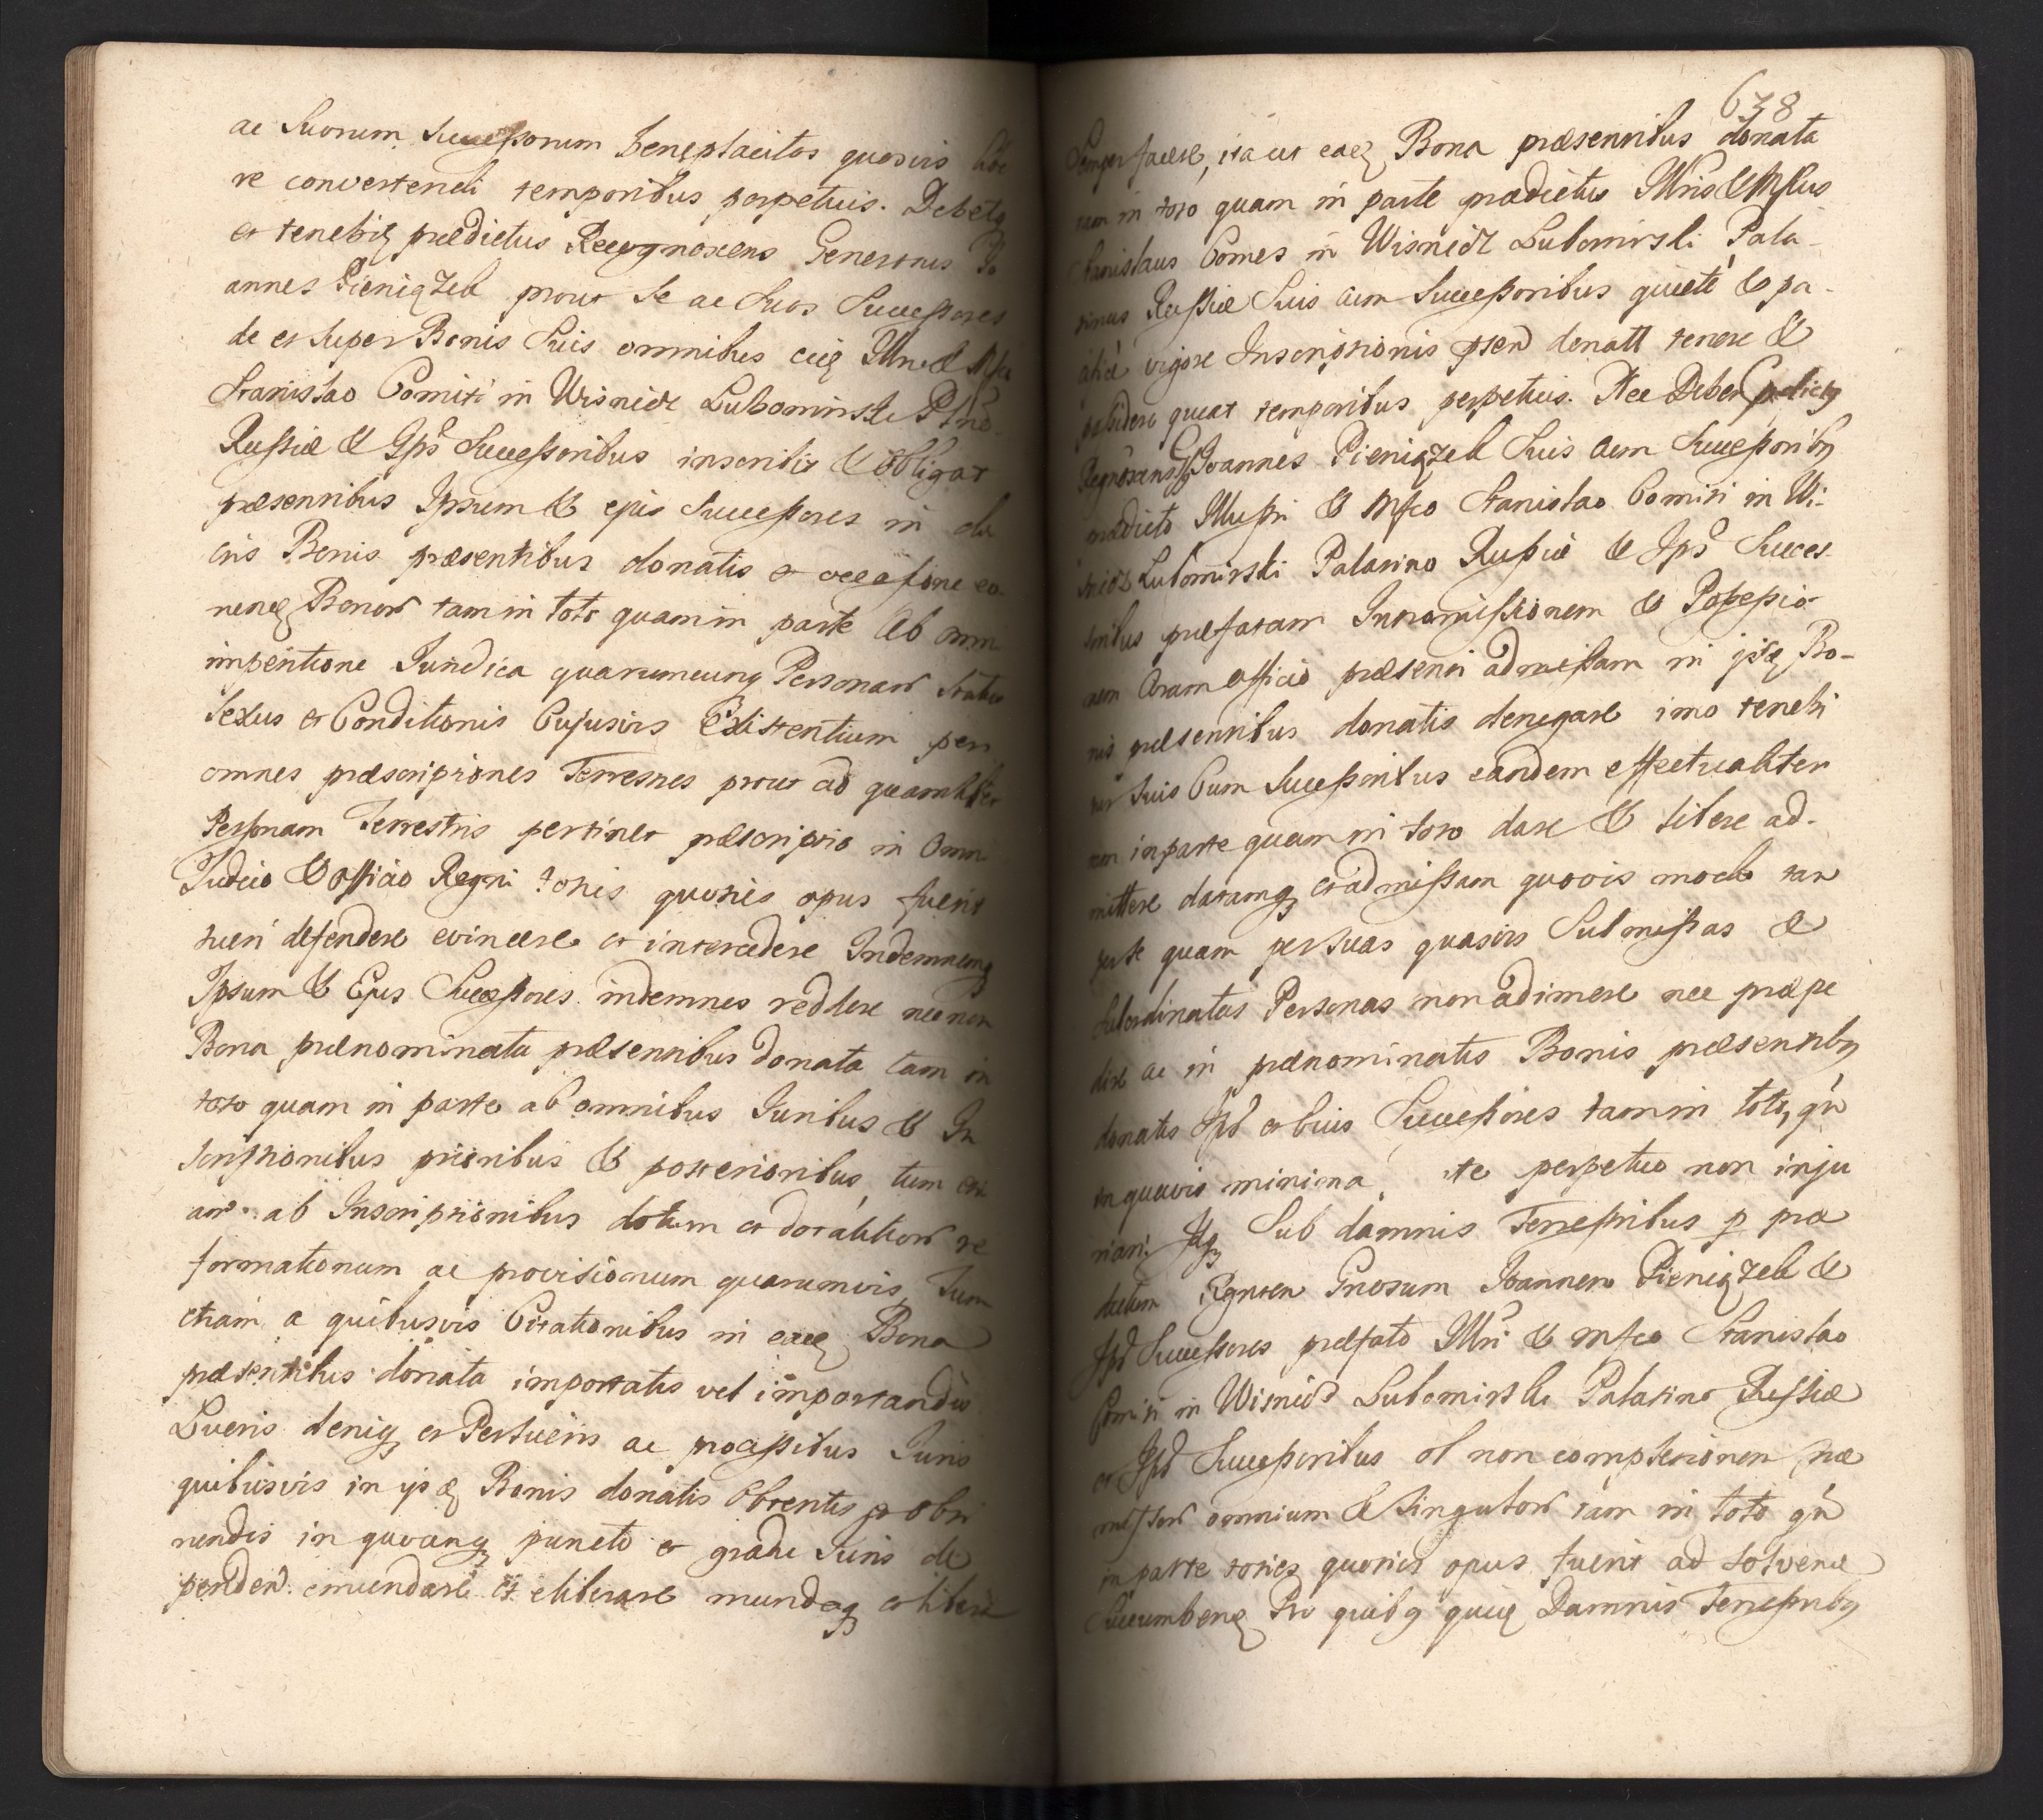 ac Suorum Successorum beneplacitas quasvis
re convertendi temporibus perpetuis. Debetq
et tenebitq prædictus Recognoscens Generosus Jo
annes Pieniązek prout se ac Suos Successores
de et super Bonis Suis omnibus eidq Illri & Mfco
Stanislao Comiti in Wisnicz Lubomirski Pttno
Russiæ & Ips Successoribus inscribit & obligat
præsentibus Ipsum & ejus Successores in di
ctis Bonis præsentibus donatis et occasione eo
rundq Bonor tam in toto quam in parte Ab omni
impetitione Juridica quarumcunq Personar Status
Sexus et Conditionis Cujusvis Existentium per
omnes præscriptiones Terrestres prout ad quamlibet
Personam Terrestris pertinet præscriptio in Omni
Judicio & officio Regni toties quoties opus fuerit
tueri defendere evincere et intercedere Indemnemq
Ipsum & Ejus Successores indemnes reddere necnon
Bona prænominata præsentibus donata tam in
toto quam in parte ab omnibus Juribus & In
scriptionibus prioribus & posterioribus tum eti
am ab Inscriptionibus dotum et dotalitior re
formationum ac provisionum quarumvis, Tum
etiam a quibusvis Citationibus in eadq Bona
præsentibus donata importatis vel importandis
Lucris deniq et Perlucris ac processibus Juris
quibusvis in ijsdq Bonis donatis obtentis et obti
nendis in quovanq puncto et gradu Juris de
penden. emundare et eliberare mundaq et libera
678
Semper facere, ita ut eadq Bona præsentibus donata
tam in toto quam in parte prædictus Illris & Mfcus
Stanislaus Comes in Wisnicz Lubomirski Pala-
tinus Russiæ Suis cum Successoribus quiete & pa-
cifice vigore Inscriptionis psen donatt tenere &
possidere queat temporibus perpetuis. Nec Debet prædictq
Rgnoscens Gsus Joannes Pieniązek Suis cum Successoribq
prædicto Illustri & Mfco Stanislao Comiti in Wi-
snicz Lubomirski Palatino Russiæ & Ips Succes
soribus præfatam Intromissionem & Possessio-
nem Coram officio præsenti admissam in ijsdq Bo-
nis præsentibus donatis denegare imo tenebi
tur Suis Cum Successoribus eandem effectualiter
tam in parte quam in toto dare & libere ad-
mittere datamq et admissam quovis modo tam
per se quam per suas quasvis Submissas &
Subordinatas Personas non adimere nec præpe
dire ac in prænominatis Bonis præsentibq
donatis Ips et hujus Successores tam in toto, qm
in quavis minima te perpetuo non inju
riari. Idq Sub damnis Terrestribus p præ
dictum Rgnscen Gnosum Joannem Pieniązek &
Ips Successores præfato Illri & Mfco Stanislao
Comiti in Wisnicz Lubomirski Palatino Russiæ
et Ips Successoribus ob non completionem præ
missor omnium & singulor tam in toto qm
in parte toties quoties opus fuerit ad solvend
Succumbenq Pro quibq quidq Damnis Terrestribq